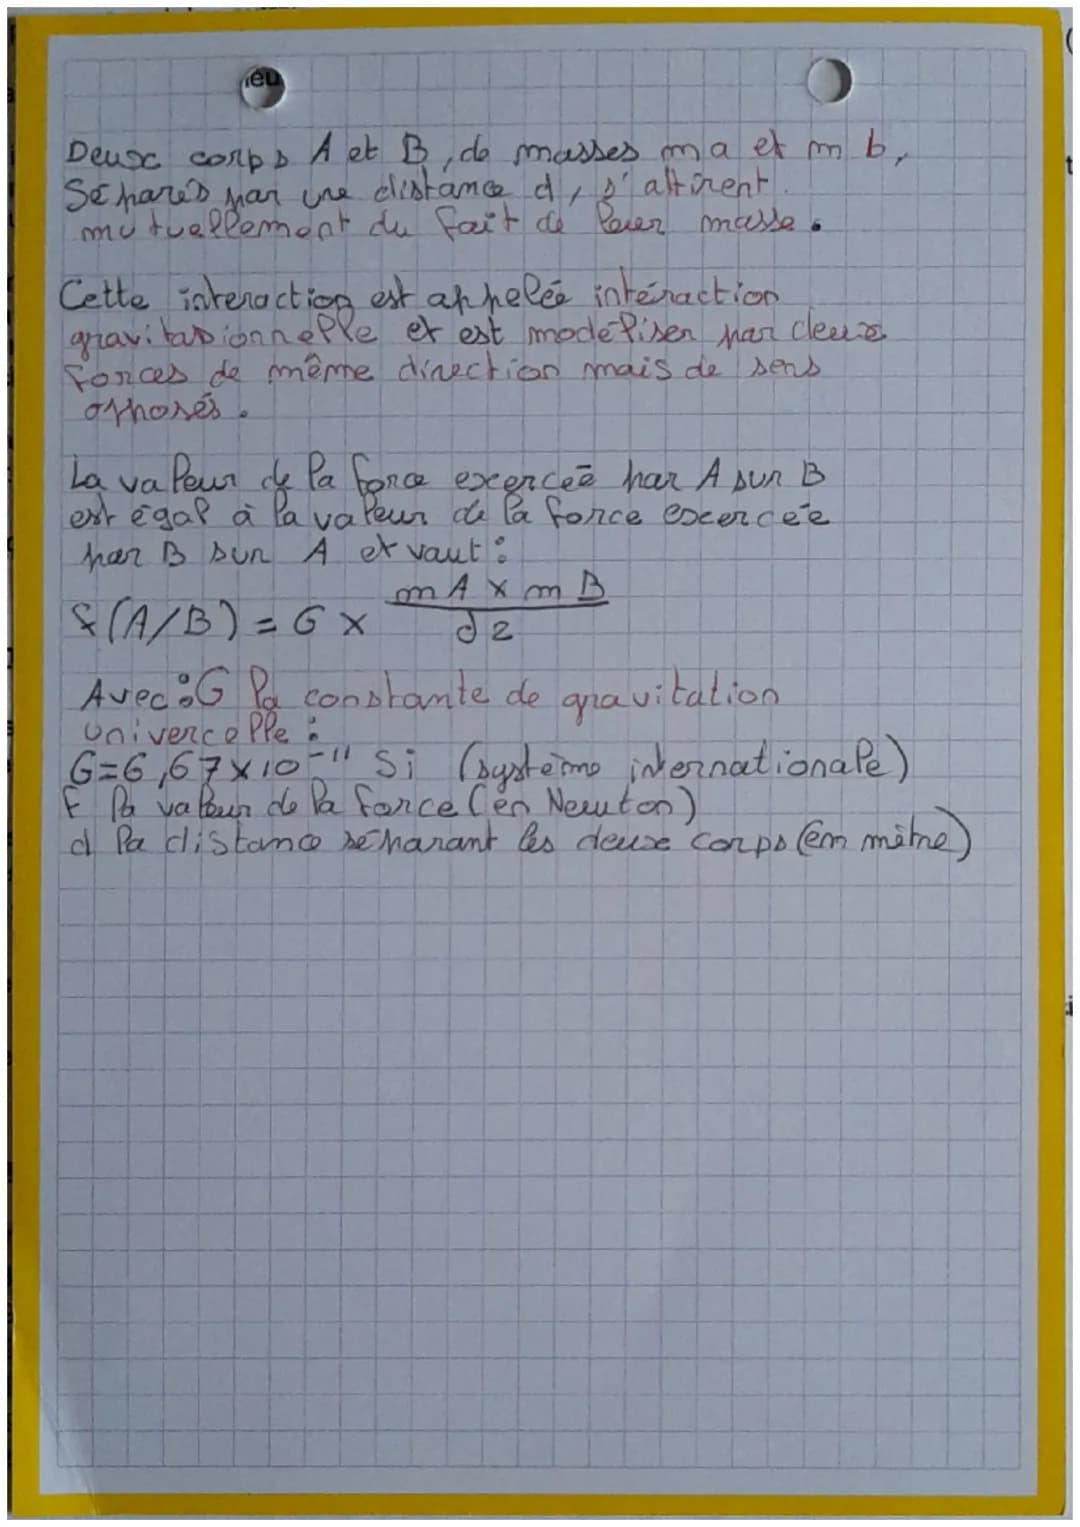 ieu
Deux corps A et B, de masses ma et m b,
Séparés par une distance d, s'attirent.
mutuellement du fait de leur masse.
Cette interaction est appelée intéraction
gravitasionnelle et est modéliser par deux
forces de même direction mais de sens
opposés.
La valeur de la force exercée par A sur B
est égal à la valeur de la force exercée
par B sur A et vaut :
f(A/B) = G x mA x mB / d2
Avec : G la constante de gravitation
univercelle :
G=6,67x10^-11 Si (système internationale)
F la valeur de la force (en Newton)
d la distance séparant les deux corps (em mètre)